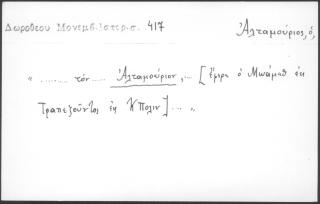 Δωροθέου Μονεμβ. Ιστορ. σ. 417
Ἀλταμούριος, ὁ,
" ........ τὸν .... Ἀλταμούριον, .. [ἔφερε ὁ Μωάμεθ ἐκ
Τραπεζοῦντος ἐς Κ/Πολιν] ... "